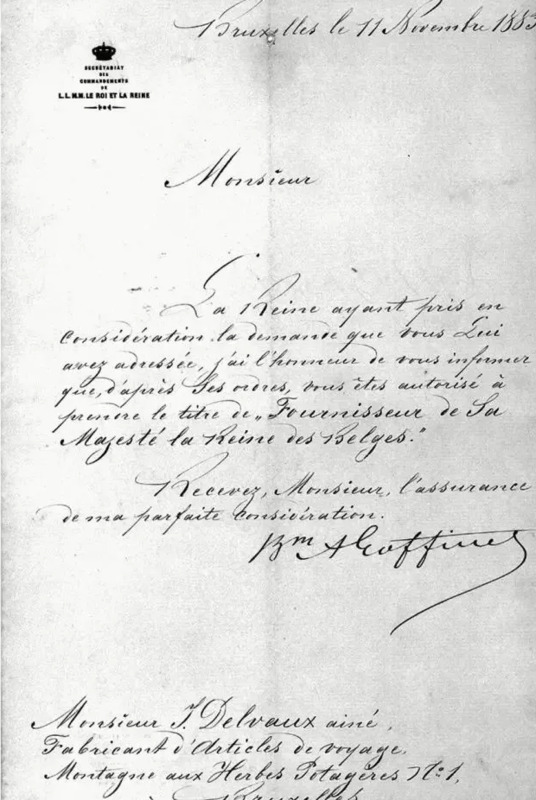 Bruxelles le 11 Novembre 1883
SECRÉTARIAT
DES
COMMANDEMENTS
DE
L.L.M.M. LE ROI ET LA REINE
Monsieur
La Reine ayant pris en
considération la demande que vous Lui
avez adressée, j'ai l'honneur de vous informer
que, d'après Ses ordres, vous êtes autorisé à
prendre le titre de „Fournisseur de Sa
Majesté la Reine des Belges."
Recevez, Monsieur, l'assurance
de ma parfaite considération.
Bon A Goffinet
Monsieur J. Delvaux ainé,
Fabricant d'Articles de voyage,
Montagne aux Herbes Potagères No 1,
à Bruxelles